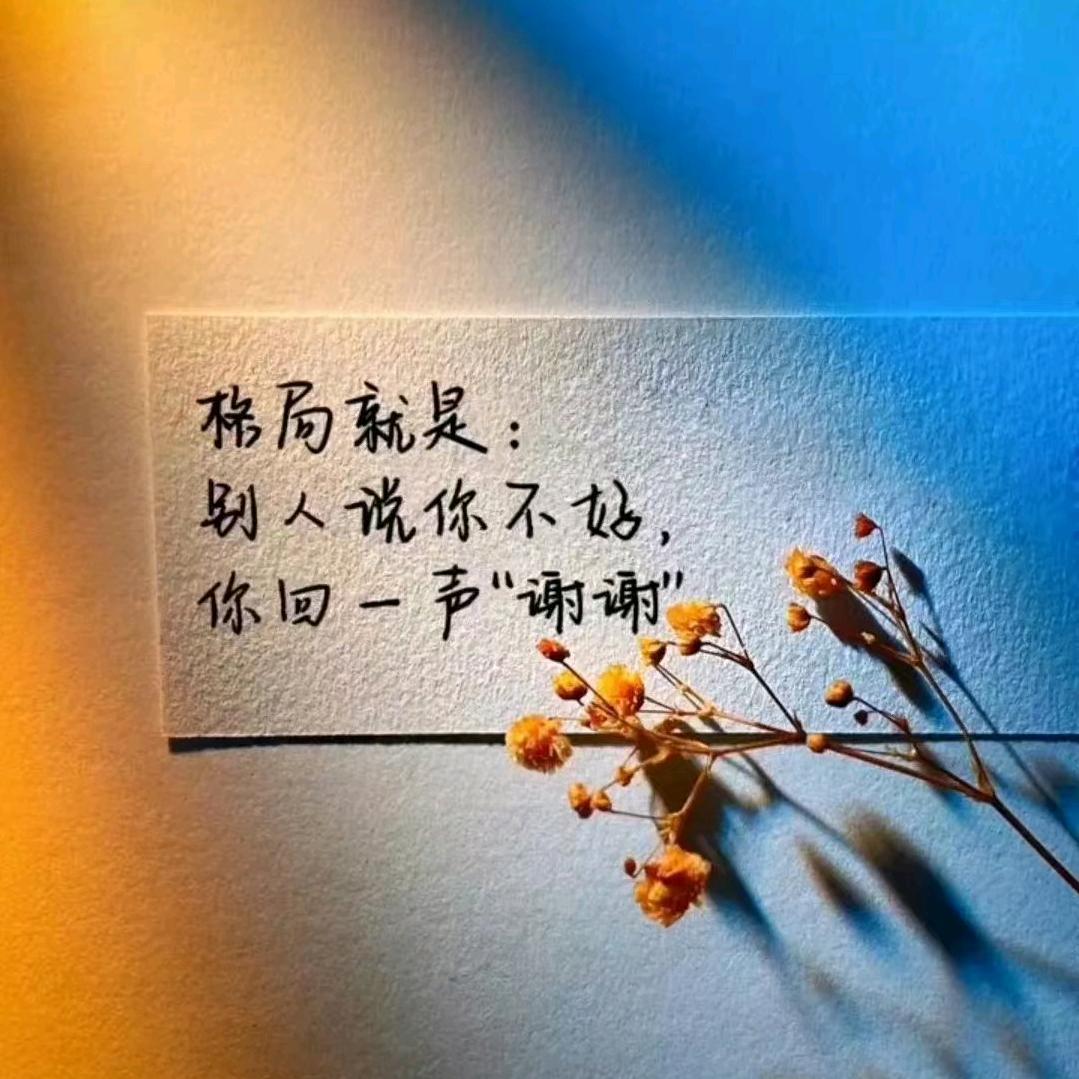 格局就是：
别人说你不好，
你回一声“谢谢”